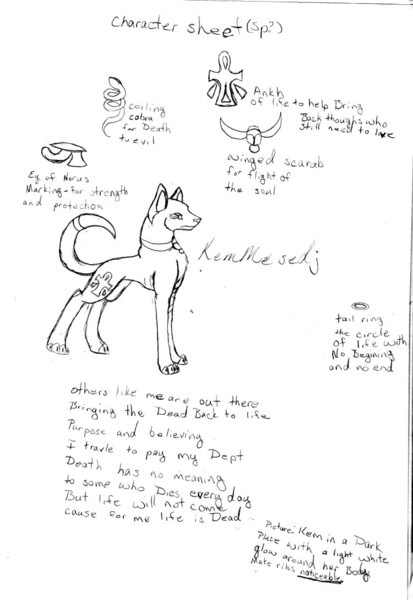 Character sheet (sp?)
Ankh
of life to help Bring
Back thoughs who
still need to live
coiling
cobra
for Death
to evil
winged scarab
for flight of
the soul
Ey of Horus
Marking - for strength
and protection
KemMesedj
tail ring
the circle
of life with
No Begining
and no end
others like me are out there
Bringing the Dead Back to life
Purpose and believing
I travle to pay my Dept
Death has no meaning
to some who Dies every day
But life will not come
cause for me life is Dead
Picture: Kem in a Dark
Place with a light white
glow around her Body
Make ribs noticeable